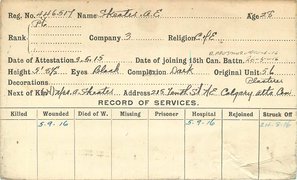 Reg. No. 446517 Name Theater. A.E. Age 25
Rank Pte Company 3 Religion C of E
Date of Attestation 5.5.15 Date of joining 15th Can. Battn. 20-5-16
Height Eyes Black Complexion Dark Original Unit 56
Decorations
Next of Kin Mrs. A. Theater. Address 215 Tenth St. N.E. Calgary Alta. Can
RECORD OF SERVICES.
Killed Wounded Died of W. Missing Prisoner Hospital Rejoined Struck Off
5-9-16 5.9.16